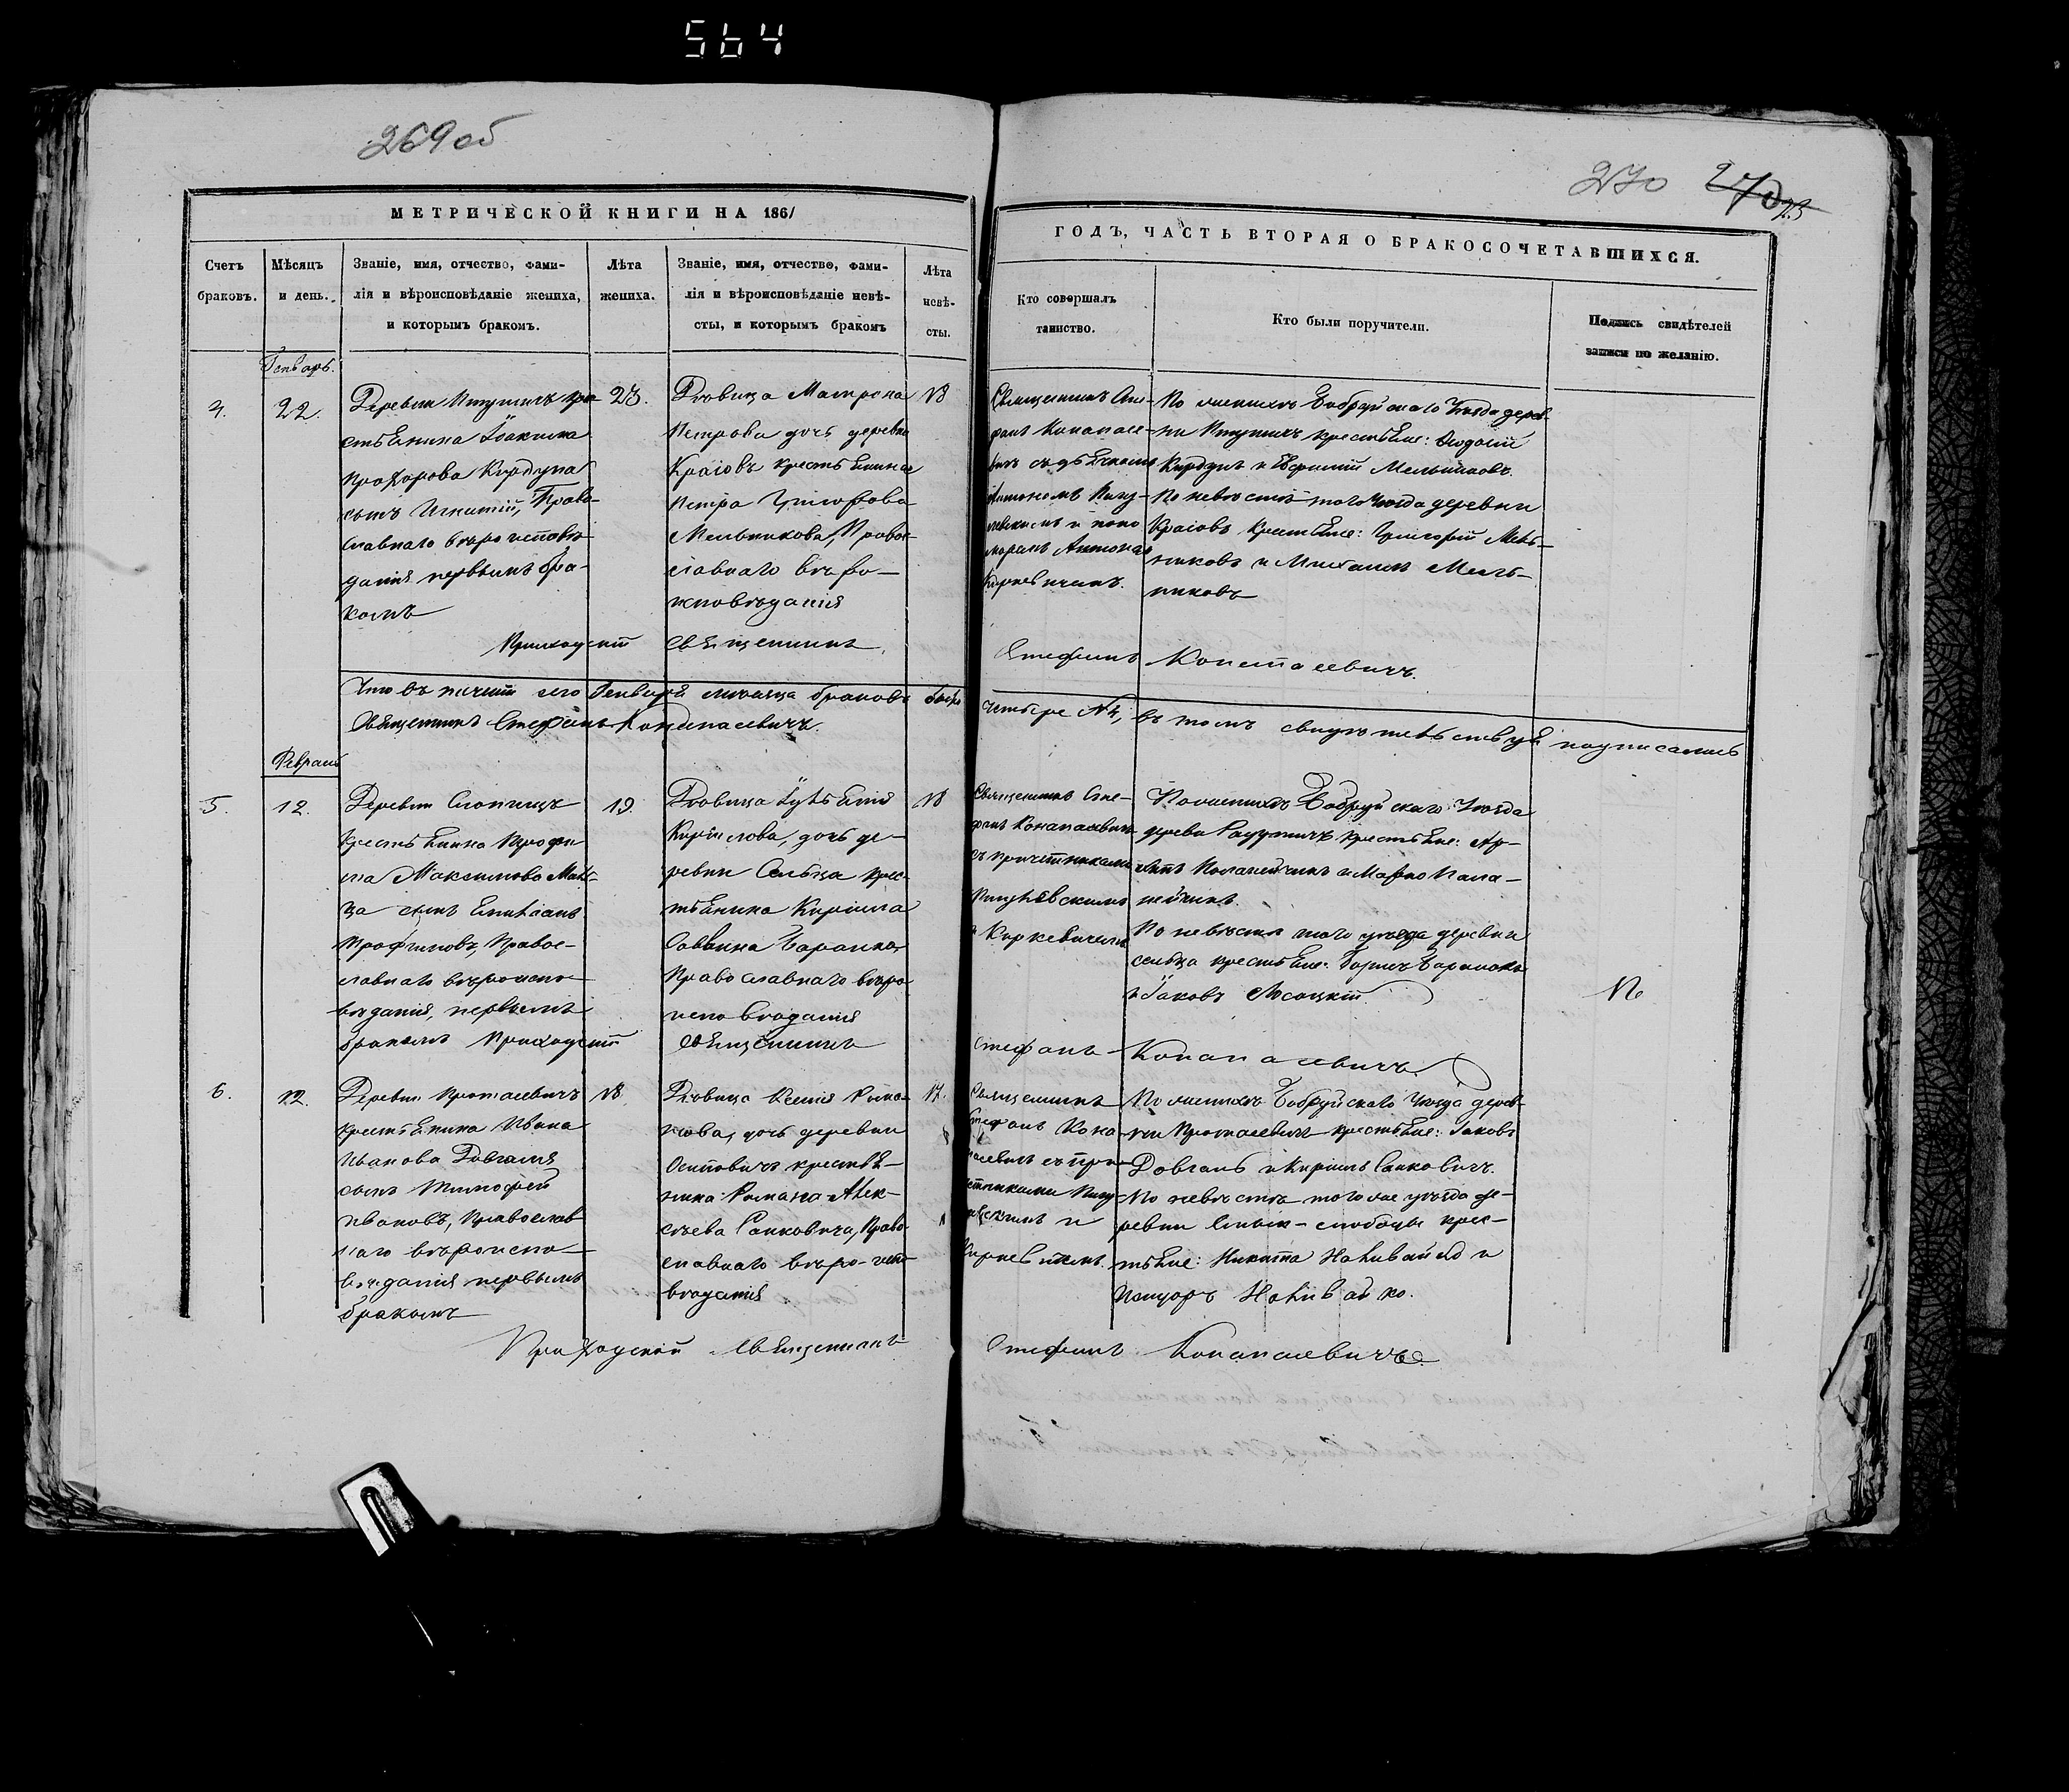 564
269 об
270 270
МЕТРИЧЕСКОЙ КНИГИ НА 1861
Счетъ браковъ.
Мѣсяцъ и день.
Званіе, имя, отчество, фами-
лія и вѣроисповѣданіе жениха,
и которымъ бракомъ.
Лѣта жениха.
Званіе, имя, отчество, фами-
лія и вѣроисповѣданіе невѣ-
сты, и которымъ бракомъ
Лѣта
невѣ-
сты.
ГОДЪ, ЧАСТЬ ВТОРАЯ О БРАКОСОЧЕТАВШИХСЯ.
Кто совершалъ
таинство.
Кто были поручители.
Подпись свидѣтелей
записи по желанію.
Генварь.
4.
22.
Деревни Птушичъ кре-
стьянина Іоакима
Прохорова Кирдуна
сынъ Игнатій, Право-
славнаго вѣроисповѣ-
данія первымъ бра-
комъ
23.
Дѣвица Матрона
Петрова дочь деревни
Краговъ крестьянина
Петра Григорова
Мельникова, Право-
славнаго вѣро-
исповѣданія
18
Священникъ Сте-
фанъ Конапасе-
вичъ съ дьячкомъ
и поно
маремъ Антонов
Киркевичемъ.
По женихѣ Бобруйскаго Уѣзда дерев-
ни Птушичъ крестьяне: Ѳеодосій
Кирдунъ и Евфимій Мельниковъ.
По невѣстѣ того Уѣзда деревни
Краговъ крестьяне: Григорій Мель-
никовъ и Михаилъ Мель-
никовъ
Приходскій Священникъ Стефанъ Конапасевичъ.
Что въ теченіи сего Генваря мѣсяца браковъ было четыре №4, въ томъ свидѣтельствуя подписались
Священникъ Стефанъ Конапасевичъ.
Февраль
5.
12.
Деревни Слопищъ
Крестьянина Трофи
ма Максимова
сынъ
Трофимовъ, Правос-
лавнаго вѣроиспо-
вѣданія, первымъ
бракомъ
19.
Дѣвица Іульянія
Кирилова, дочь де-
ревни Сельца крес-
тьянина Кирилла
Саввина Баранка
Православнаго вѣро
исповѣданія
18
Священникъ Сте-
фанъ Конапасевичъ
съ причетниками
и Киркевичемъ
По женихѣ Бобруйскаго Уѣзда
деревни Радутичъ крестьяне:
и Марко Пала-
нейчикъ.
По невѣстѣ того уѣзда деревни
Сельца крестьяне: Борисъ Баранокъ
и Іаковъ Лосацкій
Приходскій Священникъ Стефанъ Конапасевичъ
6.
12.
Деревни Протасевичъ
крестьянина Ивана
Иванова Довгаля
сынъ Тимофей
Ивановъ, Православ
наго вѣроиспо-
вѣданія первымъ
бракомъ
18
Дѣвица Ксенія Рома-
нова, дочь деревни
Осиповичъ крестья-
нина Романа Алек-
сѣева Санковича, Право-
славнаго вѣро-испо-
вѣданія
17.
Священникъ
Стефанъ Кона
пасевичъ съ при-
четниками
и
Киркевичемъ.
По женихѣ Бобруйскаго Уѣзда дерев-
ни Протасевичъ крестьяне: Іаковъ
Довгаль и Кирилъ Санковичъ.
По невѣстѣ того же уѣзда де-
ревни слободы крес-
тьяне: Никита Наливайко и
Наливайко.
Приходскій Священникъ Стефанъ Конапасевичъ